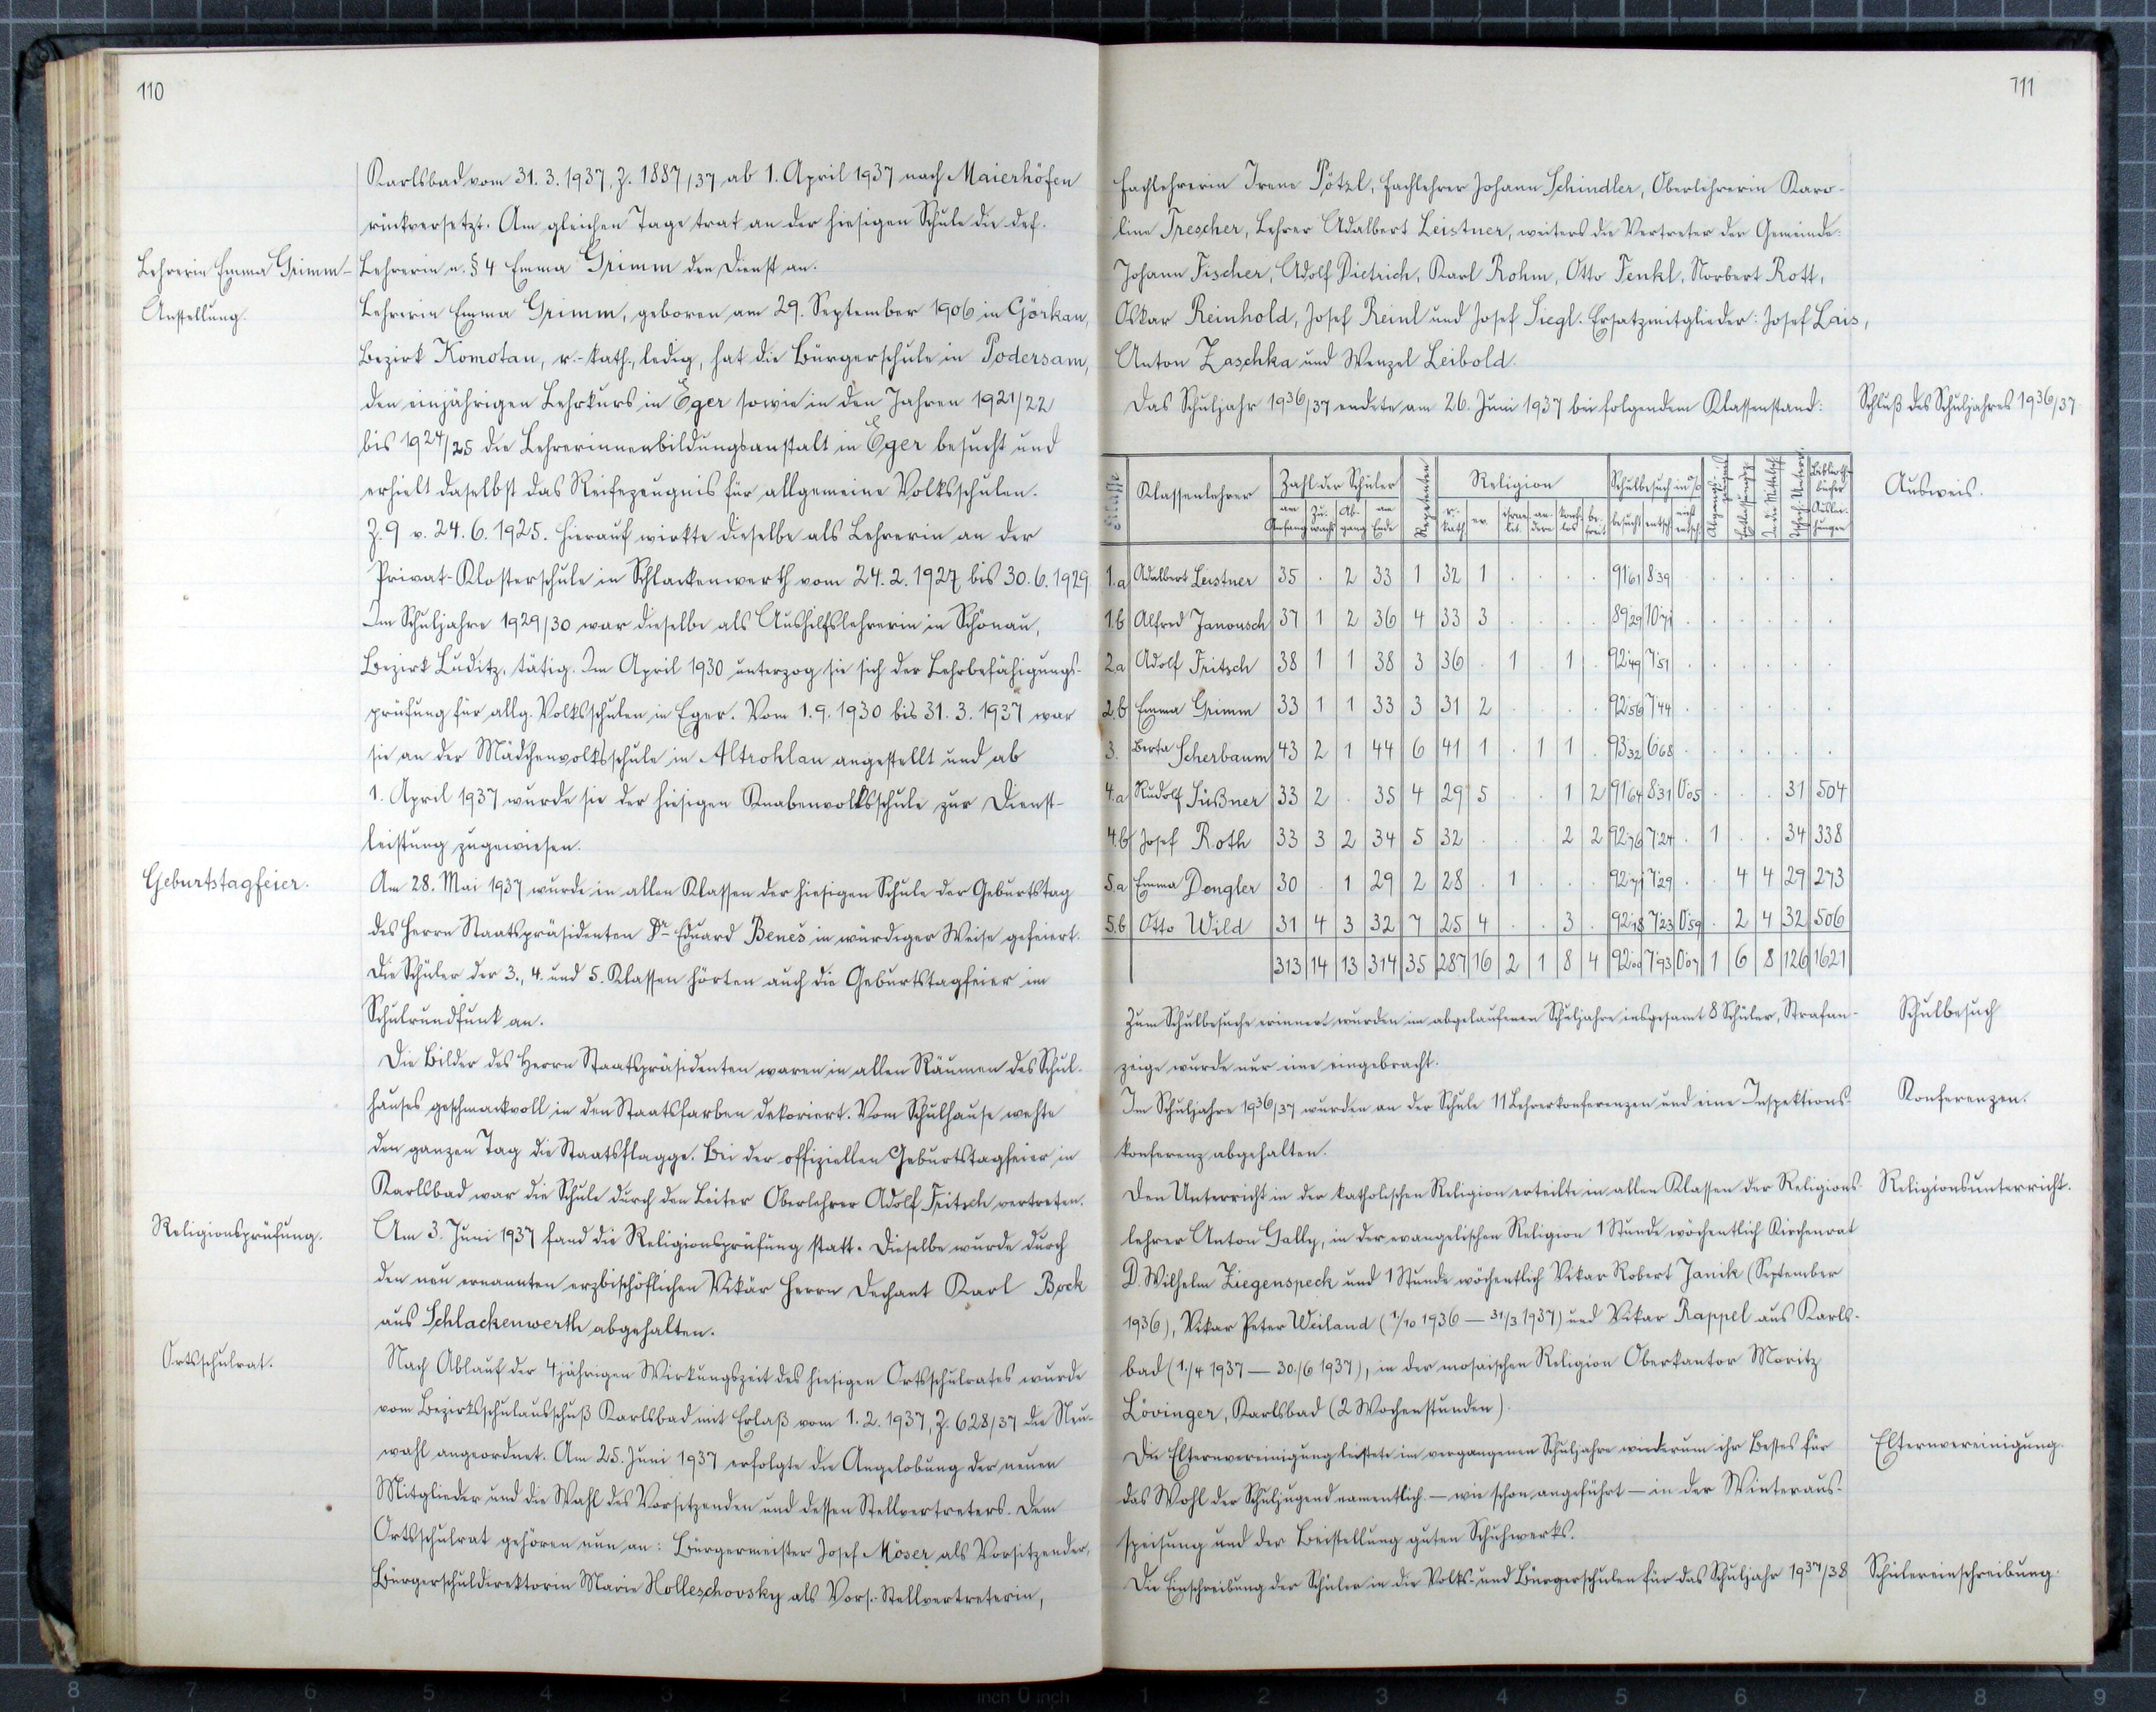 110
Karlsbad vom 31. 3. 1937, Z. 1887/37 ab 1. April 1937 nach Maierhöfen
rückversetzt. Am gleichen Tage trat an der hiesigen Schule die def.
Lehrerin Emma Grimm-
Lehrerin n. § 4 Emma Grimm den Dienst an.
Anstellung.
Lehrerin Emma Grimm, geboren am 29. September 1906 in Görkau,
Bezirk Komotau, r.-kath., ledig, hat die Bürgerschule in Podersam,
den einjährigen Lehrkurs in Eger sowie in den Jahren 1921/22
bis 1924/25 die Lehrerinnenbildungsanstalt in Eger besucht und
erhielt daselbst das Reifezeugnis für allgemeine Volksschulen.
Z. 9 v. 24. 6. 1925. Hierauf wirkte dieselbe als Lehrerin an der
Privat-Klosterschule in Schlackenwerth vom 24. 2. 1927 bis 30. 6. 1929
Im Schuljahre 1929/30 war dieselbe als Aushilfslehrerin in Schönau,
Bezirk Luditz, tätig. Im April 1930 unterzog sie sich der Lehrbefähigungs-
prüfung für allg. Volksschulen in Eger. Vom 1. 9. 1930 bis 31. 3. 1937 war
sie an der Mädchenvolksschule in Altrohlau angestellt und ab
1. April 1937 wurde sie der hiesigen Knabenvolksschule zur Dienst-
leistung zugewiesen.
Geburtstagfeier.
Am 28. Mai 1937 wurde in allen Klassen der hiesigen Schule der Geburtstag
des Herrn Staatspräsidenten Dr Eduard Beneš in würdiger Weise gefeiert.
Die Schüler der 3., 4. und 5. Klassen hörten auch die Geburtstagfeier im
Schulrundfunk an.
Die Bilder des Herrn Staatspräsidenten waren in allen Räumen des Schul-
hauses geschmackvoll in den Staatsfarben dekoriert. Vom Schulhause wehte
den ganzen Tag die Staatsflagge. Bei der offiziellen Geburtstagfeier in
Karlsbad war die Schule durch den Leiter Oberlehrer Adolf Fritsch vertreten.
Religionsprüfung.
Am 3. Juni 1937 fand die Religionsprüfung statt. Dieselbe wurde durch
den neu ernannten erzbischöflichen Vikär Herrn Dechant Karl Bock
aus Schlackenwerth abgehalten.
Ortsschulrat.
Nach Ablauf der 4jährigen Wirkungszeit des hiesigen Ortsschulrates wurde
vom Bezirksschulausschuß Karlsbad mit Erlaß vom 1. 2. 1937, Z. 628/37 die Neu-
wahl angeordnet. Am 25. Juni 1937 erfolgte die Angelobung der neuen
Mitglieder und die Wahl des Vorsitzenden und dessen Stellvertreters. Dem
Ortsschulrat gehören nun an: Bürgermeister Josef Möser als Vorsitzender,
Bürgerschuldirektorin Marie Holleschovsky als Vors.-Stellvertreterin,
111
Fachlehrerin Irene Pötzl, Fachlehrer Johann Schindler, Oberlehrerin Karo-
line Trescher, Lehrer Adalbert Leistner, weiters die Vertreter der Gemeinde:
Johann Fischer, Adolf Dietrich, Karl Rohm, Otto Fenkl, Norbert Rott,
Oskar Reinhold, Josef Reinl und Josef Siegl. Ersatzmitglieder: Josef Lais,
Anton Zaschka und Wenzel Leibold.
Das Schuljahr 1936/37 endete am 26. Juni 1937 bei folgendem Klassenstand:
Schluß des Schuljahres 1936/37
Ausweis.
Klasse Klassenlehrer Zahl der Schüler Repetenten Religion Schulbesuch in %
am Anfang Zu-wachs Ab-gang am Ende r.-kath. ev. israe-lit. an-dere konf.-los be-freit besucht entsch. nicht entsch. Bibliothe-bücher Auslei-hungen
1.a Adalbert Leistner 35 . 2 33 1 32 1 . . . . 91·61 8·39 . . . . . .
1.b Alfred Janousch 37 1 2 36 4 33 3 . . . . 89·29 10·71 . . . . . .
2.a Adolf Fritsch 38 1 1 38 3 36 . 1 . 1 . 92·49 7·51 . . . . . .
2.b Emma Grimm 33 1 1 33 3 31 2 . . . . 92·56 7·44 . . . . . .
3. Berta Scherbaum 43 2 1 44 6 41 1 . 1 1 . 93·32 6·68 . . . . . .
4.a Rudolf Süßner 33 2 . 35 4 29 5 . . 1 2 91·64 8·31 0·05 . . . 31 504
4.b Josef Roth 33 3 2 34 5 32 . . . 2 2 92·76 7·24 . 1 . . 34 338
5.a Emma Dengler 30 . 1 29 2 28 . 1 . . . 92·71 7·29 . . 4 4 29 273
5.b Otto Wild 31 4 3 32 7 25 4 . . 3 . 92·18 7·23 0·59 . 2 4 32 506
313 14 13 314 35 287 16 2 1 8 4 92·00 7·93 0·07 1 6 8 126 1621
Zum Schulbesuche erinnert wurden im abgelaufenen Schuljahre insgesamt 8 Schüler, Strafan-
Schulbesuch
zeige wurde nur eine eingebracht.
Im Schuljahre 1936/37 wurden an der Schule 11 Lehrerkonferenzen und eine Inspektions-
Konferenzen.
konferenz abgehalten.
Den Unterricht in der katholischen Religion erteilte in allen Klassen der Religions-
Religionsunterricht.
lehrer Anton Gally, in der evangelischen Religion 1 Stunde wöchentlich Kirchenrat
D. Wilhelm Ziegenspeck und 1 Stunde wöchentlich Vikar Robert Janik (September
1936), Vikar Peter Weiland (1/10 1936 — 31/3 1937) und Vikar Rappel aus Karls-
bad (1./4 1937 — 30./6 1937), in der mosaischen Religion Oberkantor Moritz
Lövinger, Karlsbad (2 Wochenstunden).
Die Elternvereinigung leistete im vergangenen Schuljahre wiederum ihr Bestes für
Elternvereinigung.
das Wohl der Schuljugend namentlich — wie schon angeführt — in der Winteraus-
speisung und der Beistellung guten Schuhwerks.
Die Einschreibung der Schüler in die Volks- und Bürgerschulen für das Schuljahr 1937/38
Schülereinschreibung.
8 7 6 5 4 3 2 1 inch 0 inch 1 2 3 4 5 6 7 8 9